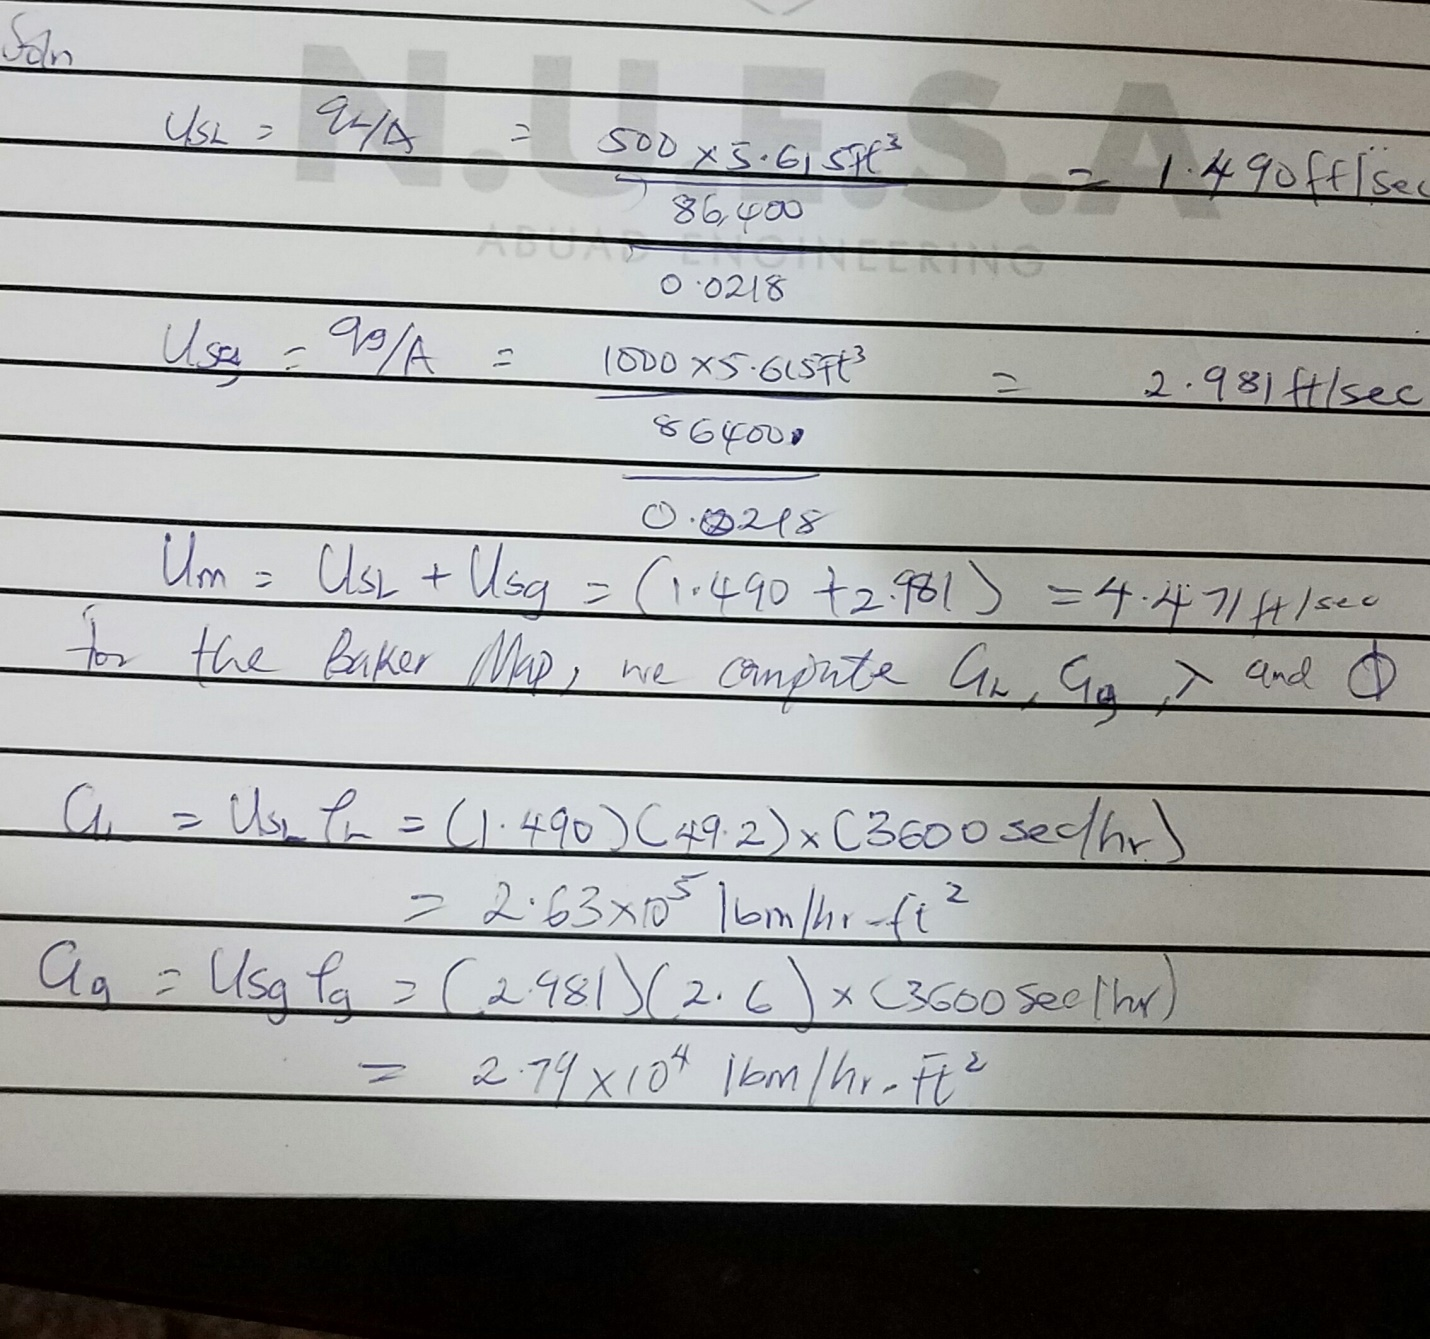 Soln
N.U.E.S.A
ABUAD ENGINEERING
U_SL = qL/A = 500 x 5.615ft³ / 86,400 / 0.0218 = 1.490ft/sec
U_sg = qg/A = 1000 x 5.615ft³ / 86400 / 0.0218 = 2.981ft/sec
Um = U_SL + U_sg = (1.490 + 2.981) = 4.471ft/sec
for the Baker Map, we compute G_L, G_g, λ and ϕ
G_L = U_SL ρ_L = (1.490)(49.2) x (3600 sec/hr)
= 2.63x10⁵ lbm/hr-ft²
G_g = U_sg ρ_g = (2.981)(2.6) x (3600 sec/hr)
= 2.79x10⁴ lbm/hr-ft²